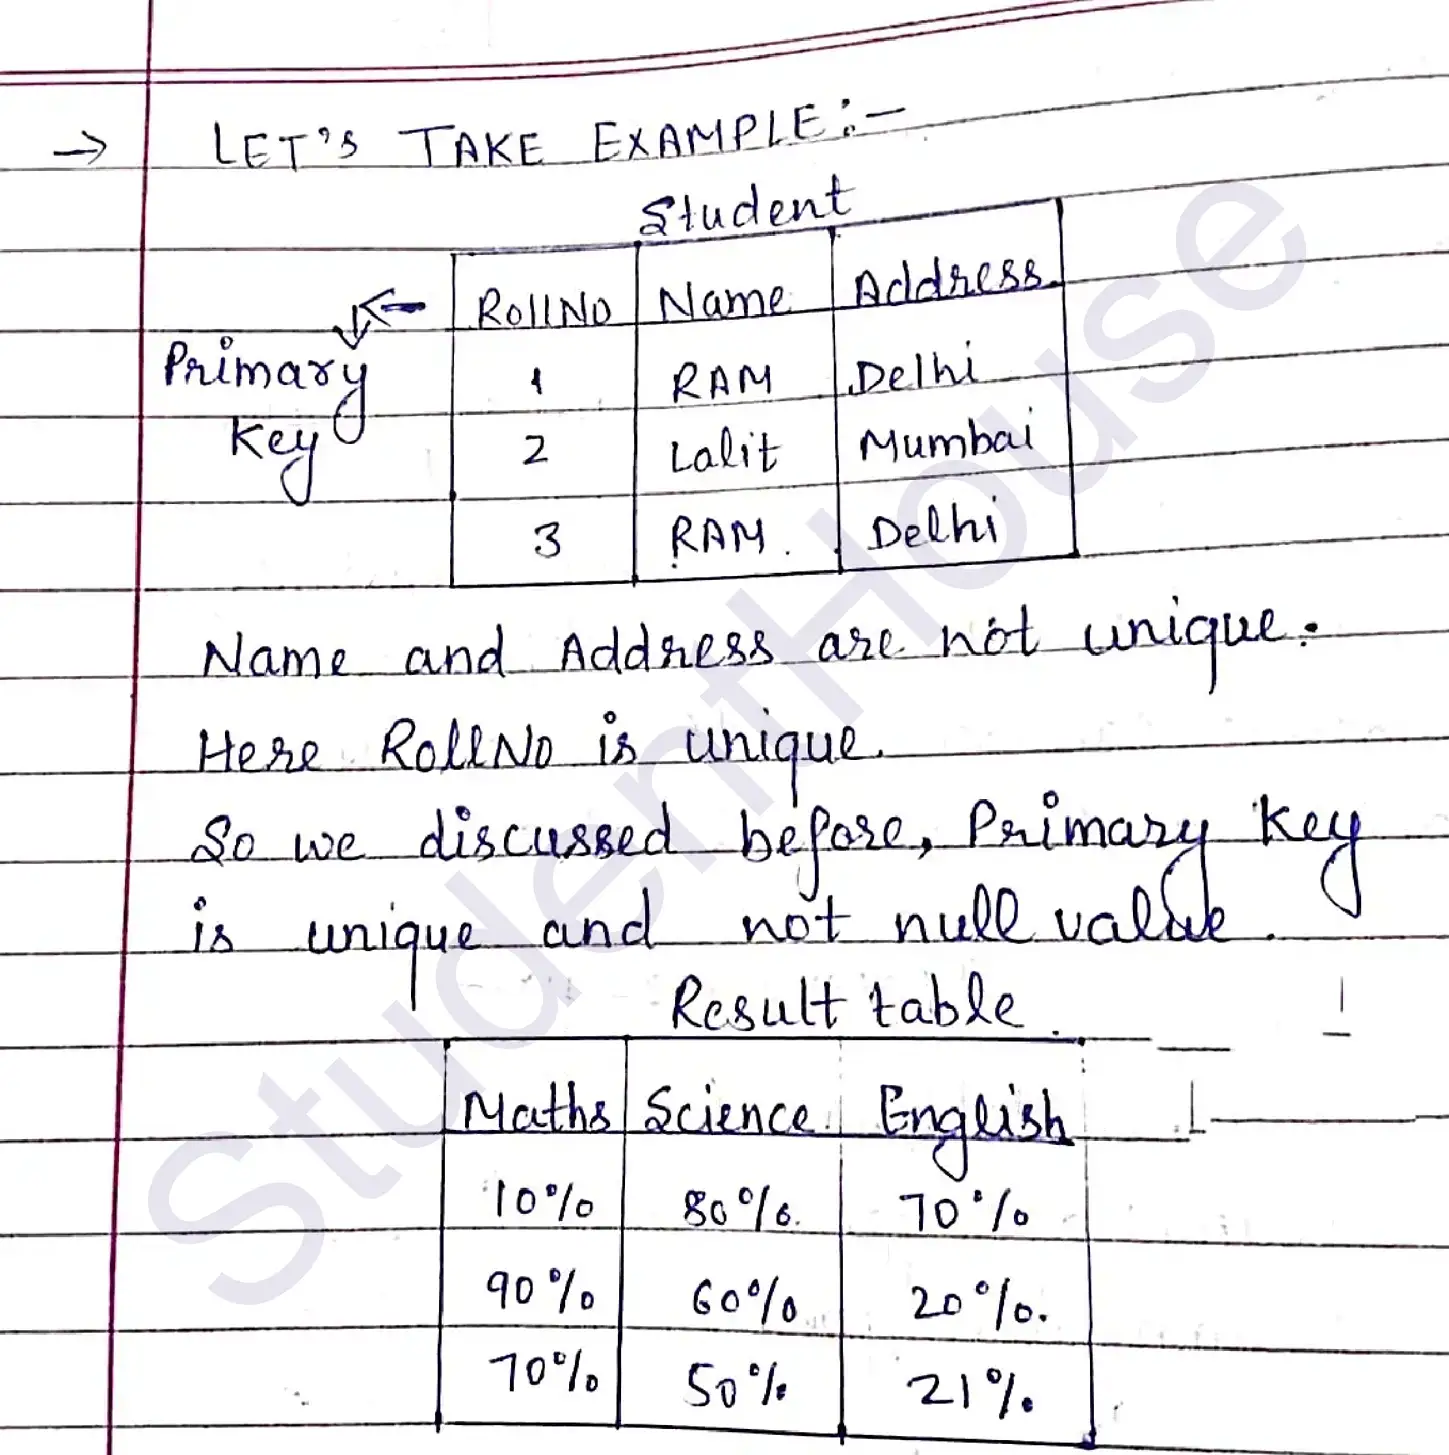 → LET'S TAKE EXAMPLE:-
Student
RollNo Name Address
Primary Key
1 RAM Delhi
2 Lalit Mumbai
3 RAM. Delhi
Name and Address are not unique.
Here RollNo is unique.
So we discussed before, Primary key
is unique and not null value.
Result table.
Maths Science English
10% 80%. 70%
90% 60% 20%.
70% 50% 21%.
StudentHouse